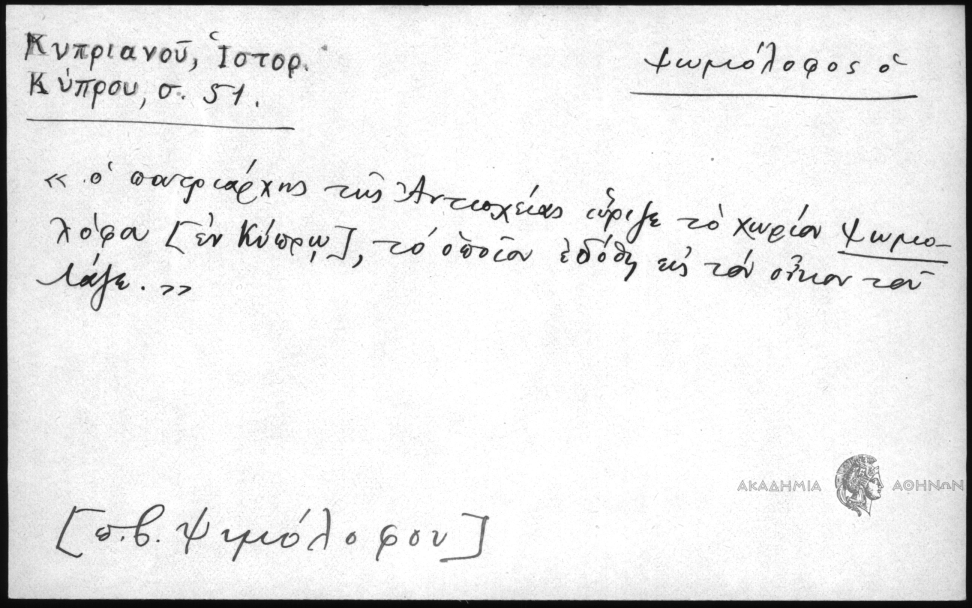 Κυπριανοῦ, Ἱστορ.
Κύπρου, σ. 51.
Ψωμόλοφος ὁ
« ὁ πατριάρχης τῆς Ἀντιοχείας ὥριζε τὸ χωρίον Ψωμο-
λόφα [ἐν Κύπρῳ], τὸ ὁποῖον ἐδόθη εἰς τὸν οἶκον τοῦ
Λάζε. »
ΑΚΑΔΗΜΙΑ ΑΘΗΝΩΝ
[π.β. Ψημόλοφου]